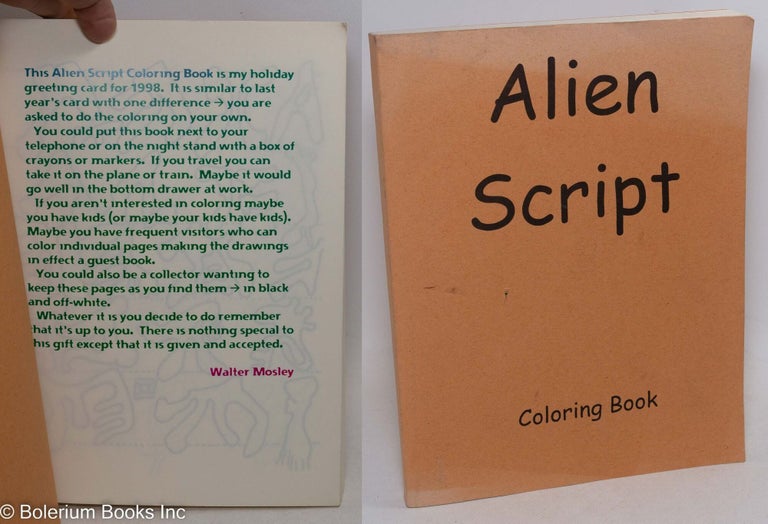 This Alien Script Coloring Book is my holiday
greeting card for 1998. It is similar to last
year's card with one difference → you are
asked to do the coloring on your own.
You could put this book next to your
telephone or on the night stand with a box of
crayons or markers. If you travel you can
take it on the plane or train. Maybe it would
go well in the bottom drawer at work.
If you aren't interested in coloring maybe
you have kids (or maybe your kids have kids).
Maybe you have frequent visitors who can
color individual pages making the drawings
in effect a guest book.
You could also be a collector wanting to
keep these pages as you find them → in black
and off-white.
Whatever it is you decide to do remember
that it's up to you. There is nothing special to
this gift except that it is given and accepted.
Walter Mosley
Alien
Script
Coloring Book
© Bolerium Books Inc